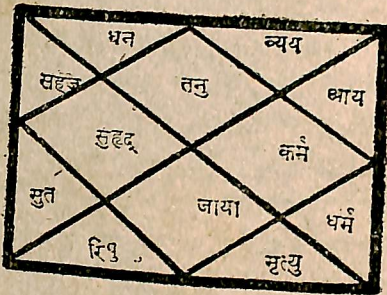 धन व्यय
सहज तनु आय
सुहृद् कर्म
सुत जाया धर्म
रिपु मृत्यु